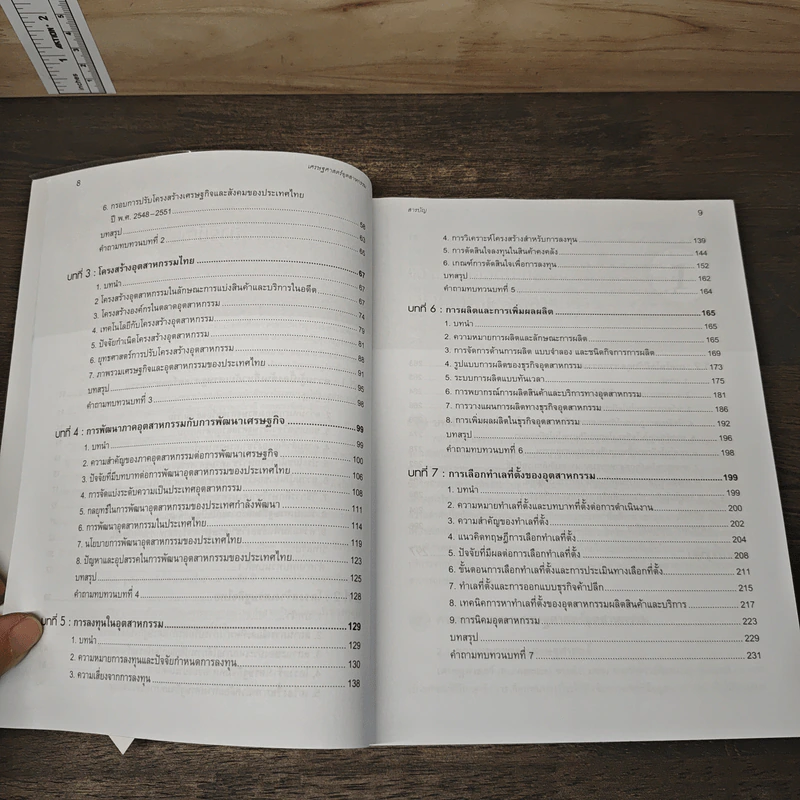 8 เศรษฐศาสตร์อุตสาหกรรม
6. กรอบการปรับโครงสร้างเศรษฐกิจและสังคมของประเทศไทย
ปี พ.ศ. 2548-2551 58
บทสรุป 63
คำถามทบทวนบทที่ 2 65
บทที่ 3 : โครงสร้างอุตสาหกรรมไทย 67
1. บทนำ 67
2 โครงสร้างอุตสาหกรรมในลักษณะการแบ่งสินค้าและบริการในอดีต 67
3. โครงสร้างองค์กรในตลาดอุตสาหกรรม 74
4. เทคโนโลยีกับโครงสร้างอุตสาหกรรม 79
5. ปัจจัยกำเนิดโครงสร้างอุตสาหกรรม 81
6. ยุทธศาสตร์การปรับโครงสร้างอุตสาหกรรม 88
7. ภาพรวมเศรษฐกิจและอุตสาหกรรมของประเทศไทย 91
บทสรุป 95
คำถามทบทวนบทที่ 3 98
บทที่ 4 : การพัฒนาภาคอุตสาหกรรมกับการพัฒนาเศรษฐกิจ 99
1. บทนำ 99
2. ความสำคัญของภาคอุตสาหกรรมต่อการพัฒนาเศรษฐกิจ 100
3. ปัจจัยที่มีบทบาทต่อการพัฒนาอุตสาหกรรมของประเทศไทย 106
4. การจัดแบ่งระดับความเป็นประเทศอุตสาหกรรม 108
5. กลยุทธ์ในการพัฒนาอุตสาหกรรมของประเทศกำลังพัฒนา 111
6. การพัฒนาอุตสาหกรรมในประเทศไทย 114
7. นโยบายการพัฒนาอุตสาหกรรมของประเทศไทย 119
8. ปัญหาและอุปสรรคในการพัฒนาอุตสาหกรรมของประเทศไทย 123
บทสรุป 125
คำถามทบทวนบทที่ 4 128
บทที่ 5 : การลงทุนในอุตสาหกรรม 129
1. บทนำ 129
2. ความหมายการลงทุนและปัจจัยกำหนดการลงทุน 130
3. ความเสี่ยงจากการลงทุน 138
สารบัญ 9
4. การวิเคราะห์โครงสร้างสำหรับการลงทุน 139
5. การตัดสินใจลงทุนในสินค้าคงคลัง 144
6. เกณฑ์การตัดสินใจเพื่อการลงทุน 152
บทสรุป 162
คำถามทบทวนบทที่ 5 164
บทที่ 6 : การผลิตและการเพิ่มผลผลิต 165
1. บทนำ 165
2. ความหมายการผลิตและลักษณะการผลิต 165
3. การจัดการด้านการผลิต แบบจำลอง และชนิดกิจการการผลิต 169
4. รูปแบบการผลิตของธุรกิจอุตสาหกรรม 173
5. ระบบการผลิตแบบทันเวลา 175
6. การพยากรณ์การผลิตสินค้าและบริการทางอุตสาหกรรม 181
7. การวางแผนการผลิตทางธุรกิจอุตสาหกรรม 186
8. การเพิ่มผลผลิตในธุรกิจอุตสาหกรรม 192
บทสรุป 196
คำถามทบทวนบทที่ 6 198
บทที่ 7 : การเลือกทำเลที่ตั้งของอุตสาหกรรม 199
1. บทนำ 199
2. ความหมายทำเลที่ตั้งและบทบาทที่ตั้งต่อการดำเนินงาน 200
3. ความสำคัญของทำเลที่ตั้ง 202
4. แนวคิดทฤษฎีการเลือกทำเลที่ตั้ง 204
5. ปัจจัยที่มีผลต่อการเลือกทำเลที่ตั้ง 208
6. ขั้นตอนการเลือกทำเลที่ตั้งและการประเมินทางเลือกที่ตั้ง 211
7. ทำเลที่ตั้งและการออกแบบธุรกิจค้าปลีก 215
8. เทคนิคการหาทำเลที่ตั้งของอุตสาหกรรมผลิตสินค้าและบริการ 217
9. การนิคมอุตสาหกรรม 223
บทสรุป 229
คำถามทบทวนบทที่ 7 231